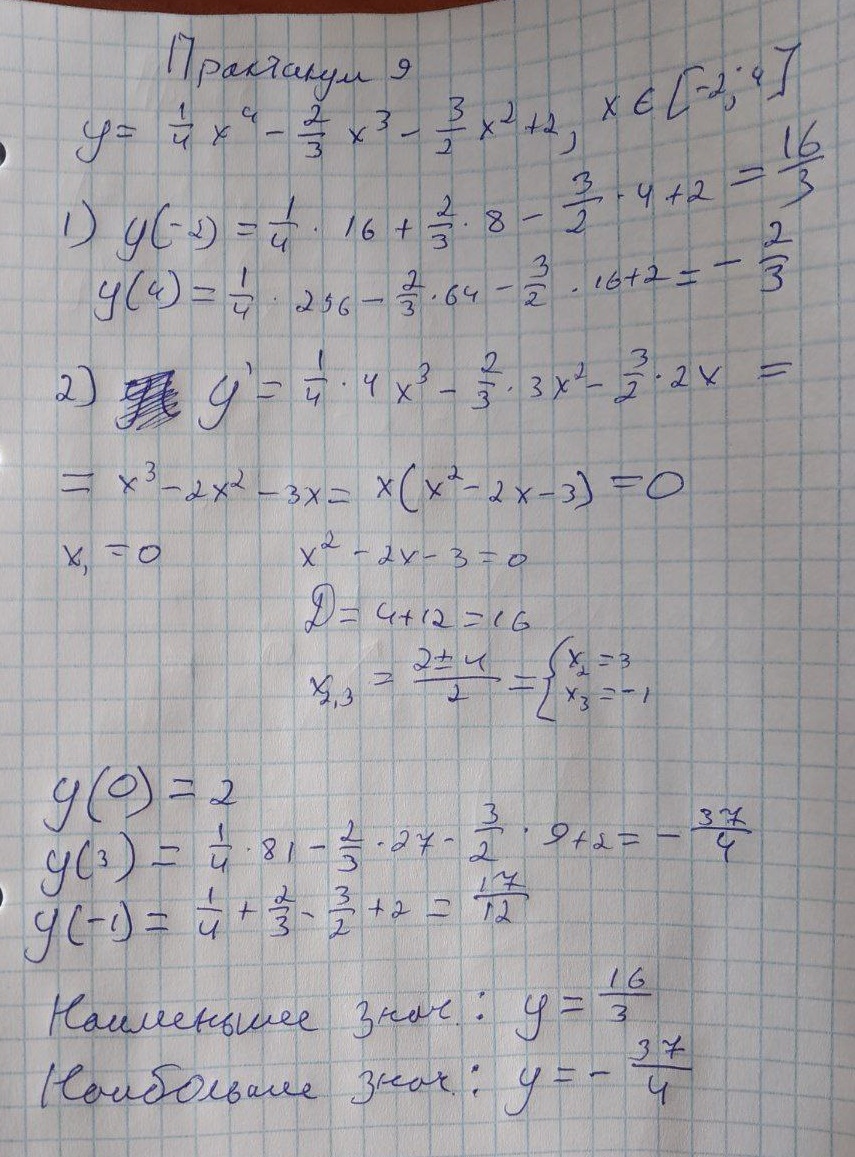 Практикум 9
y = 1/4 x^4 - 2/3 x^3 - 3/2 x^2 + 2, x ∈ [-2; 4]
1) y(-2) = 1/4 · 16 + 2/3 · 8 - 3/2 · 4 + 2 = 16/3
y(4) = 1/4 · 256 - 2/3 · 64 - 3/2 · 16 + 2 = - 2/3
2) y' = 1/4 · 4x^3 - 2/3 · 3x^2 - 3/2 · 2x =
= x^3 - 2x^2 - 3x = x(x^2 - 2x - 3) = 0
x_1 = 0 x^2 - 2x - 3 = 0
D = 4 + 12 = 16
x_2,3 = (2 ± 4)/2 = { x_2 = 3
x_3 = -1
y(0) = 2
y(3) = 1/4 · 81 - 2/3 · 27 - 3/2 · 9 + 2 = - 37/4
y(-1) = 1/4 + 2/3 - 3/2 + 2 = 17/12
Наименьшее знач.: y = 16/3
Наибольшее знач.: y = - 37/4